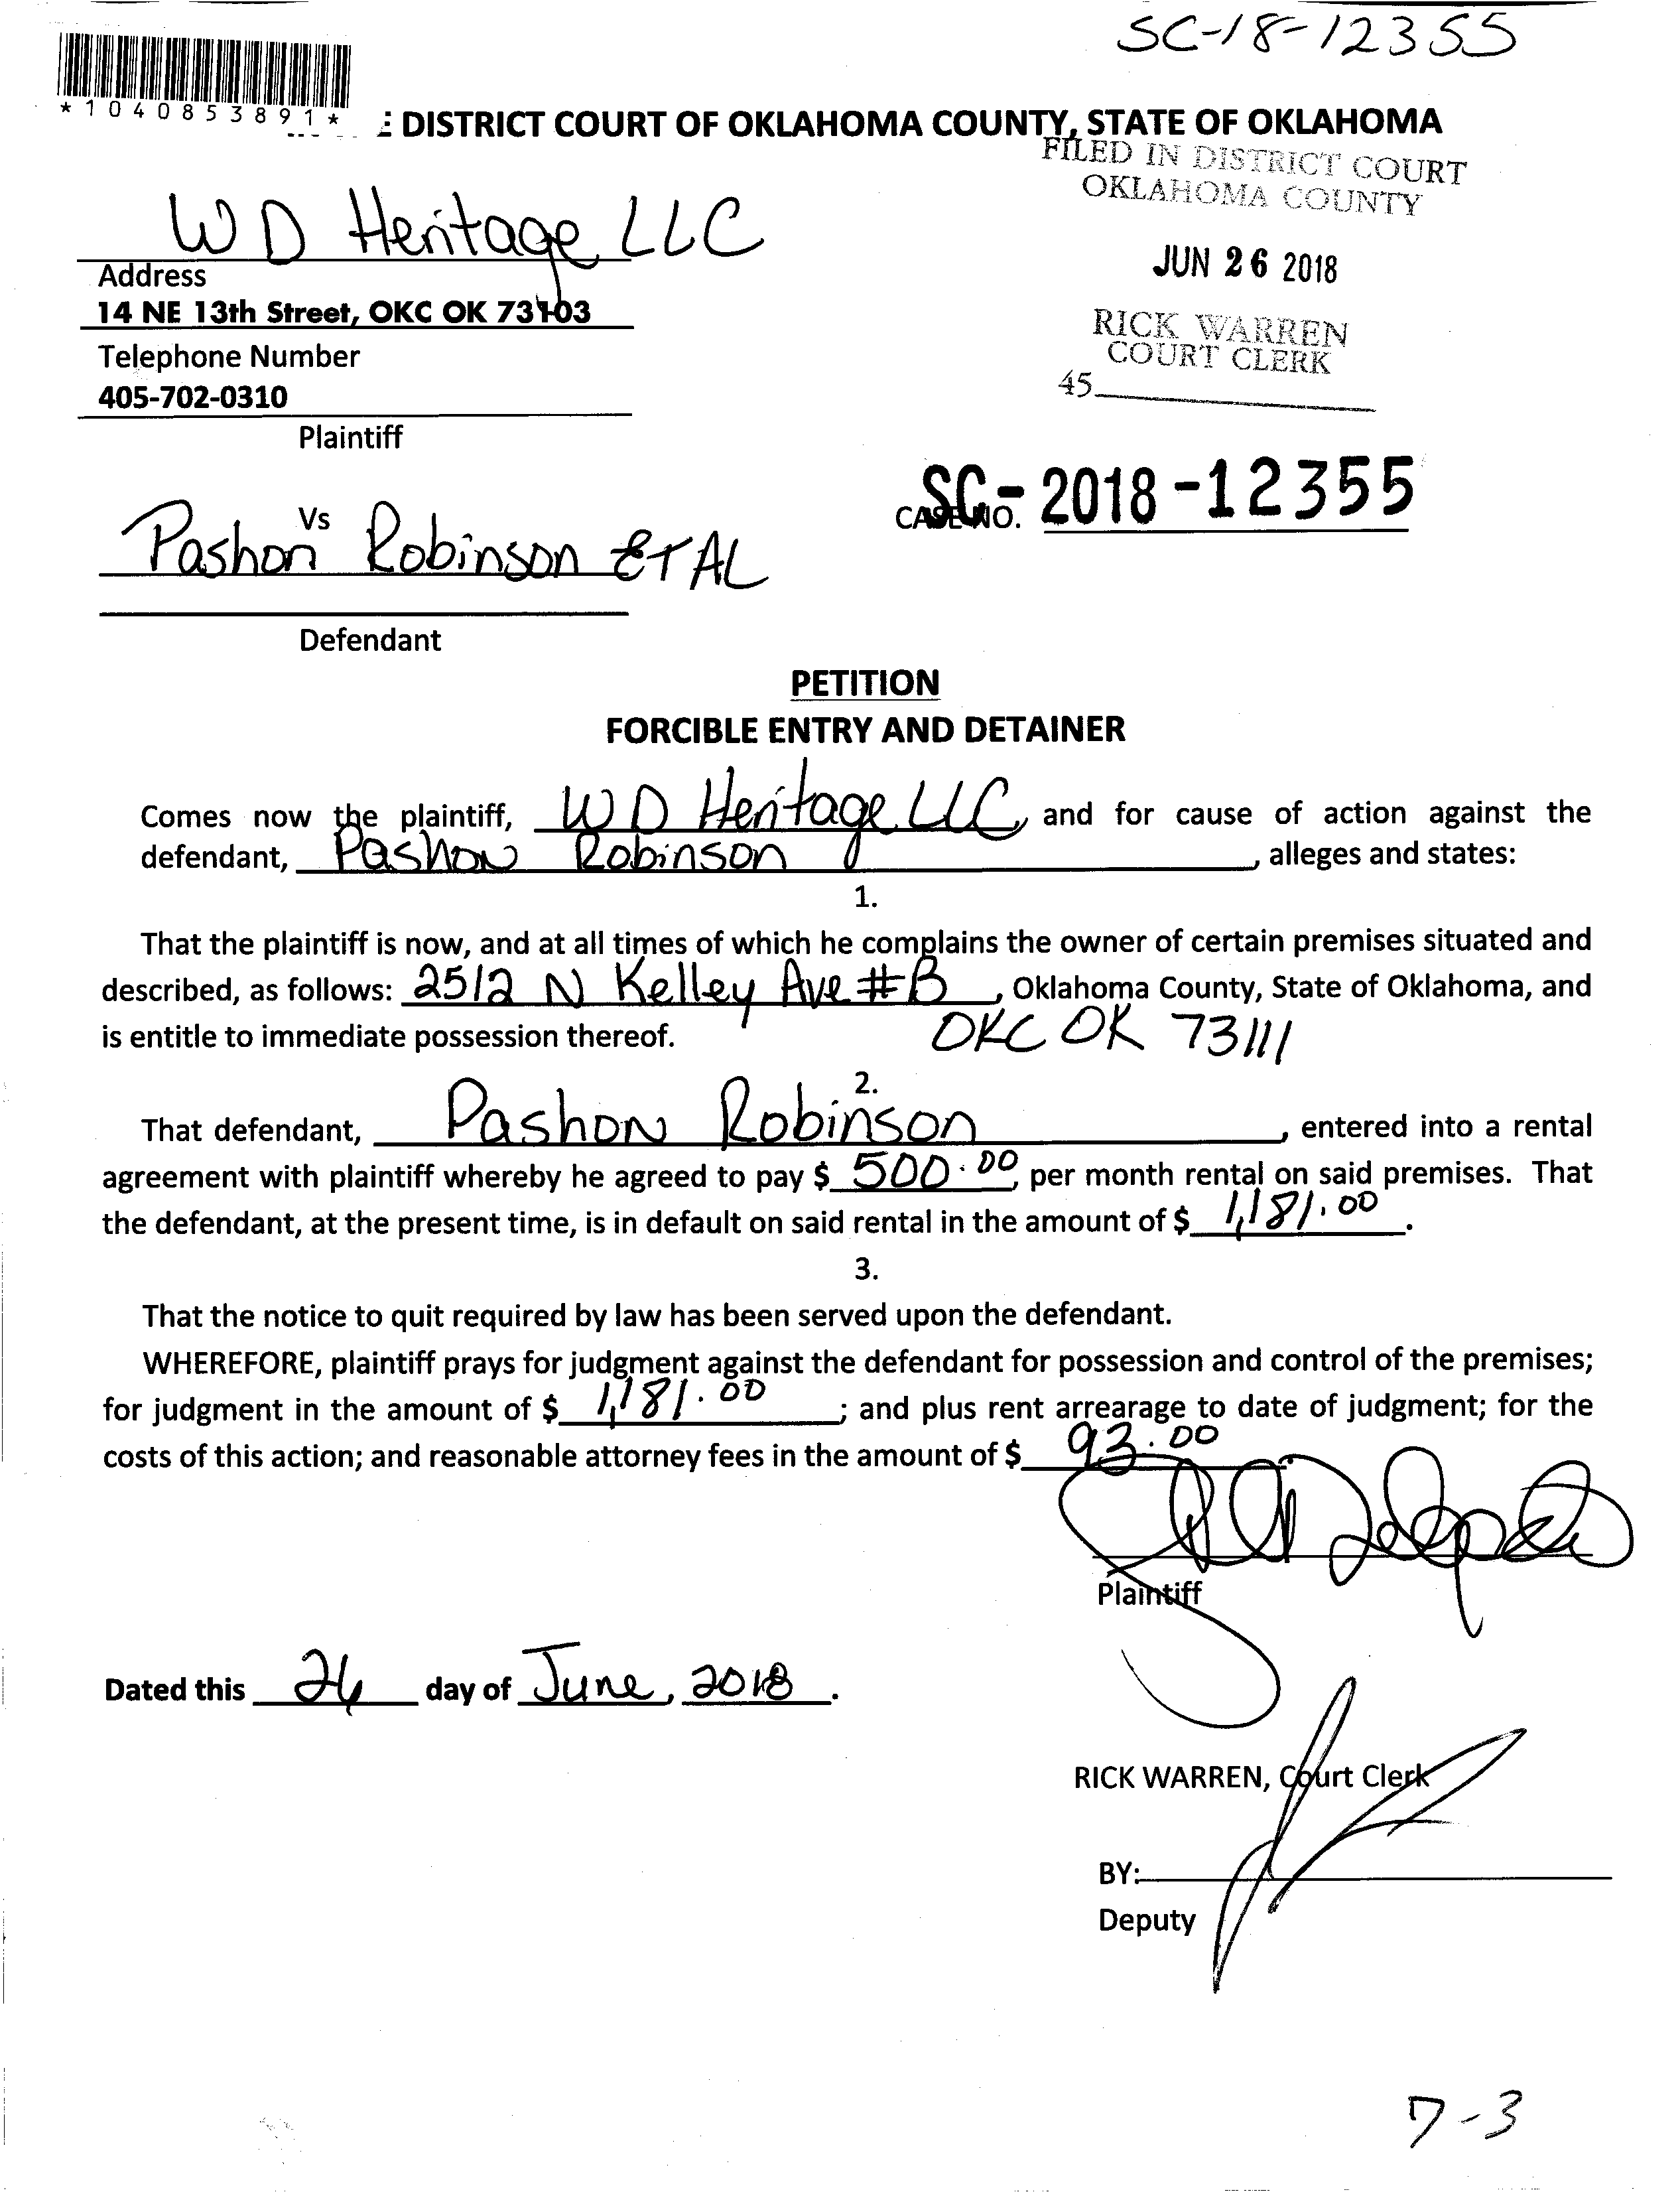 SC-18-12355
*1040853891*
DISTRICT COURT OF OKLAHOMA COUNTY, STATE OF OKLAHOMA
FILED IN DISTRICT COURT
OKLAHOMA COUNTY
JUN 26 2018
RICK WARREN
COURT CLERK
45
WD Heritage LLC
Address
14 NE 13th Street, OKC OK 73103
Telephone Number
405-702-0310
Plaintiff
SC- 2018-12355
CASE NO.
Vs
Pashon Robinson ET AL
Defendant
PETITION
FORCIBLE ENTRY AND DETAINER
Comes now the plaintiff, WD Heritage LLC, and for cause of action against the
defendant, Pashon Robinson, alleges and states:
1.
That the plaintiff is now, and at all times of which he complains the owner of certain premises situated and
described, as follows: 2512 N Kelley Ave #B, Oklahoma County, State of Oklahoma, and
is entitle to immediate possession thereof. OKC OK 73111
2.
That defendant, Pashon Robinson, entered into a rental
agreement with plaintiff whereby he agreed to pay $ 500.00, per month rental on said premises. That
the defendant, at the present time, is in default on said rental in the amount of $ 1,181.00.
3.
That the notice to quit required by law has been served upon the defendant.
WHEREFORE, plaintiff prays for judgment against the defendant for possession and control of the premises;
for judgment in the amount of $ 1,181.00; and plus rent arrearage to date of judgment; for the
costs of this action; and reasonable attorney fees in the amount of $ 93.00.
Plaintiff
Dated this 26 day of June, 2018.
RICK WARREN, Court Clerk
BY:
Deputy
7-3